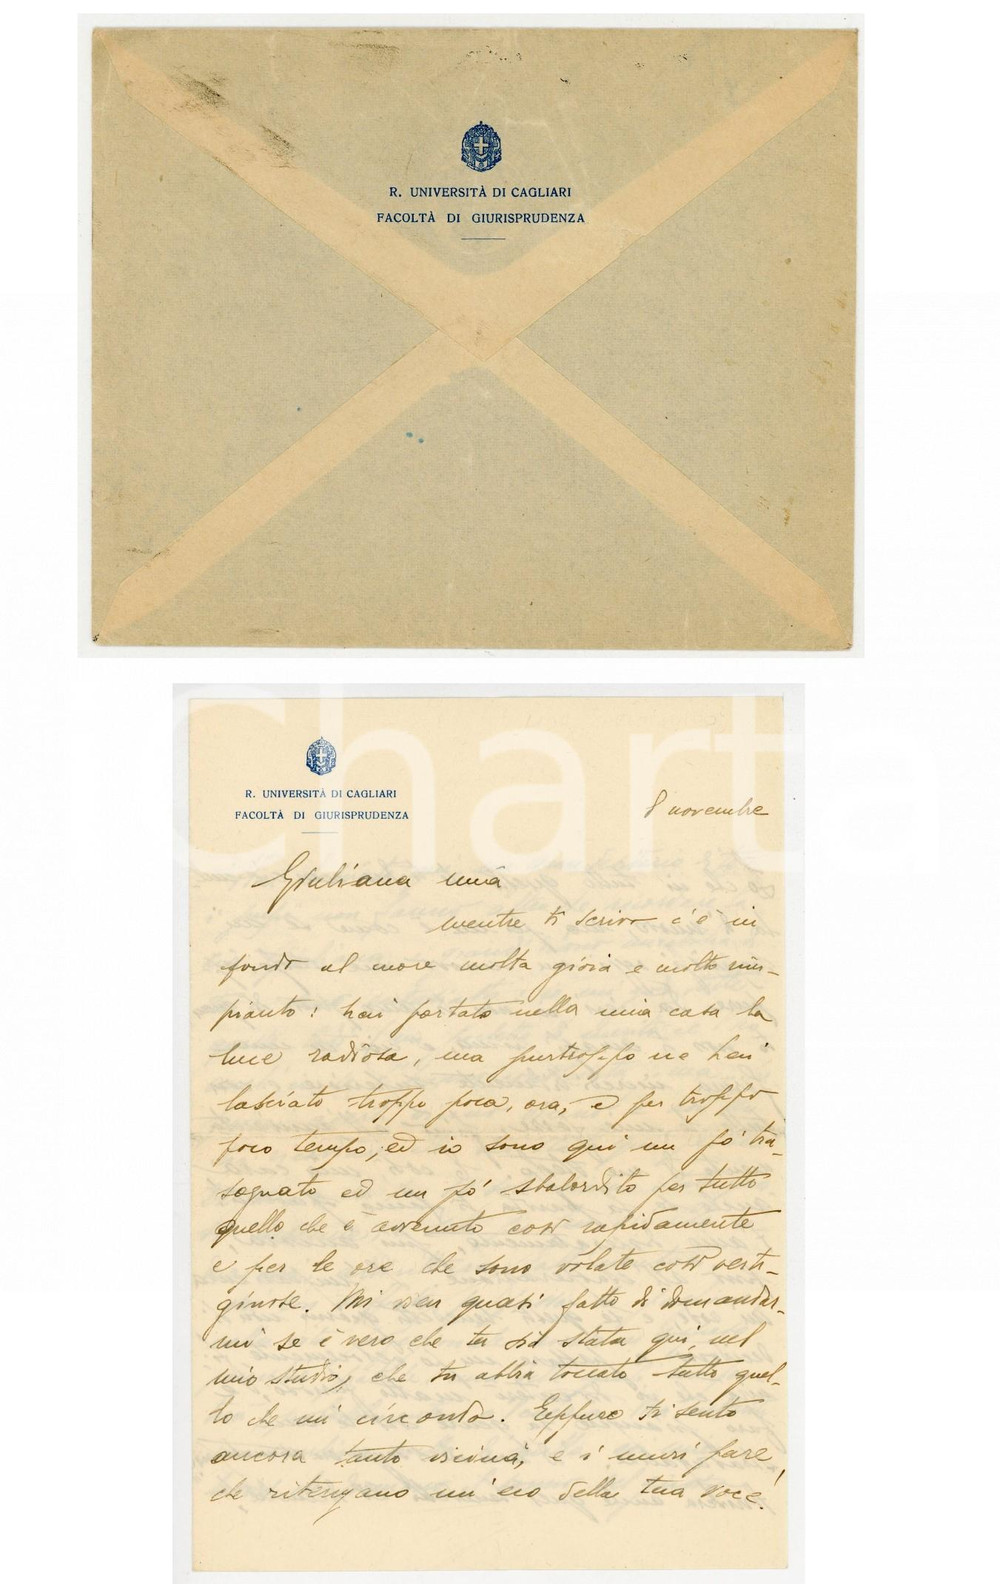 R. UNIVERSITÀ DI CAGLIARI
FACOLTÀ DI GIURISPRUDENZA
Charta
R. UNIVERSITÀ DI CAGLIARI
FACOLTÀ DI GIURISPRUDENZA
8 novembre
Giuliana mia
mentre ti scrivo c'è in
fondo al cuore molta gioia e molto rim-
pianto: hai portato nella mia casa la
luce radiosa, ma purtroppo ne hai
lasciato troppo poca, ora, e per troppo
poco tempo; ed io sono qui un pò tra-
sognato ed un pò sbalordito per tutto
quello che è avvenuto così rapidamente
e per le ore che sono volate così verti-
ginose. Mi vien quasi fatto di domandar-
mi se è vero che tu sia stata qui, nel
mio studio, che tu abbia toccato tutto quel-
lo che mi circonda. Eppure ti sento
ancora tanto vicina, e i muri pare
che ritengano un'eco della tua voce!